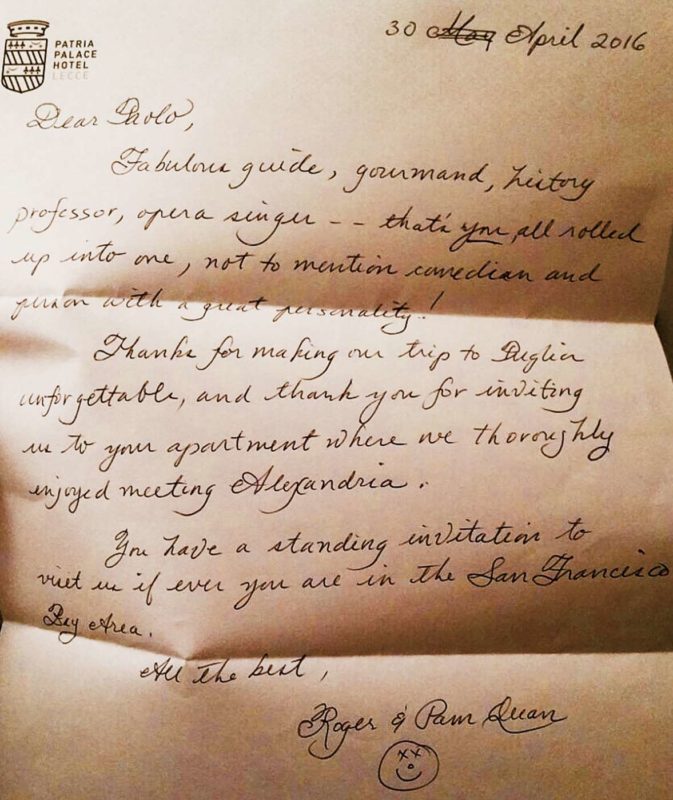 PATRIA
PALACE
HOTEL
LECCE
30 May April 2016
Dear Paolo,
Fabulous guide, gourmand, history
professor, opera singer -- that's you, all rolled
up into one, not to mention comedian and
person with a great personality!
Thanks for making our trip to Puglia
unforgettable, and thank you for inviting
us to your apartment where we thoroughly
enjoyed meeting Alexandria.
You have a standing invitation to
visit us if ever you are in the San Francisco
Bay Area.
All the best,
Roger & Pam Quan